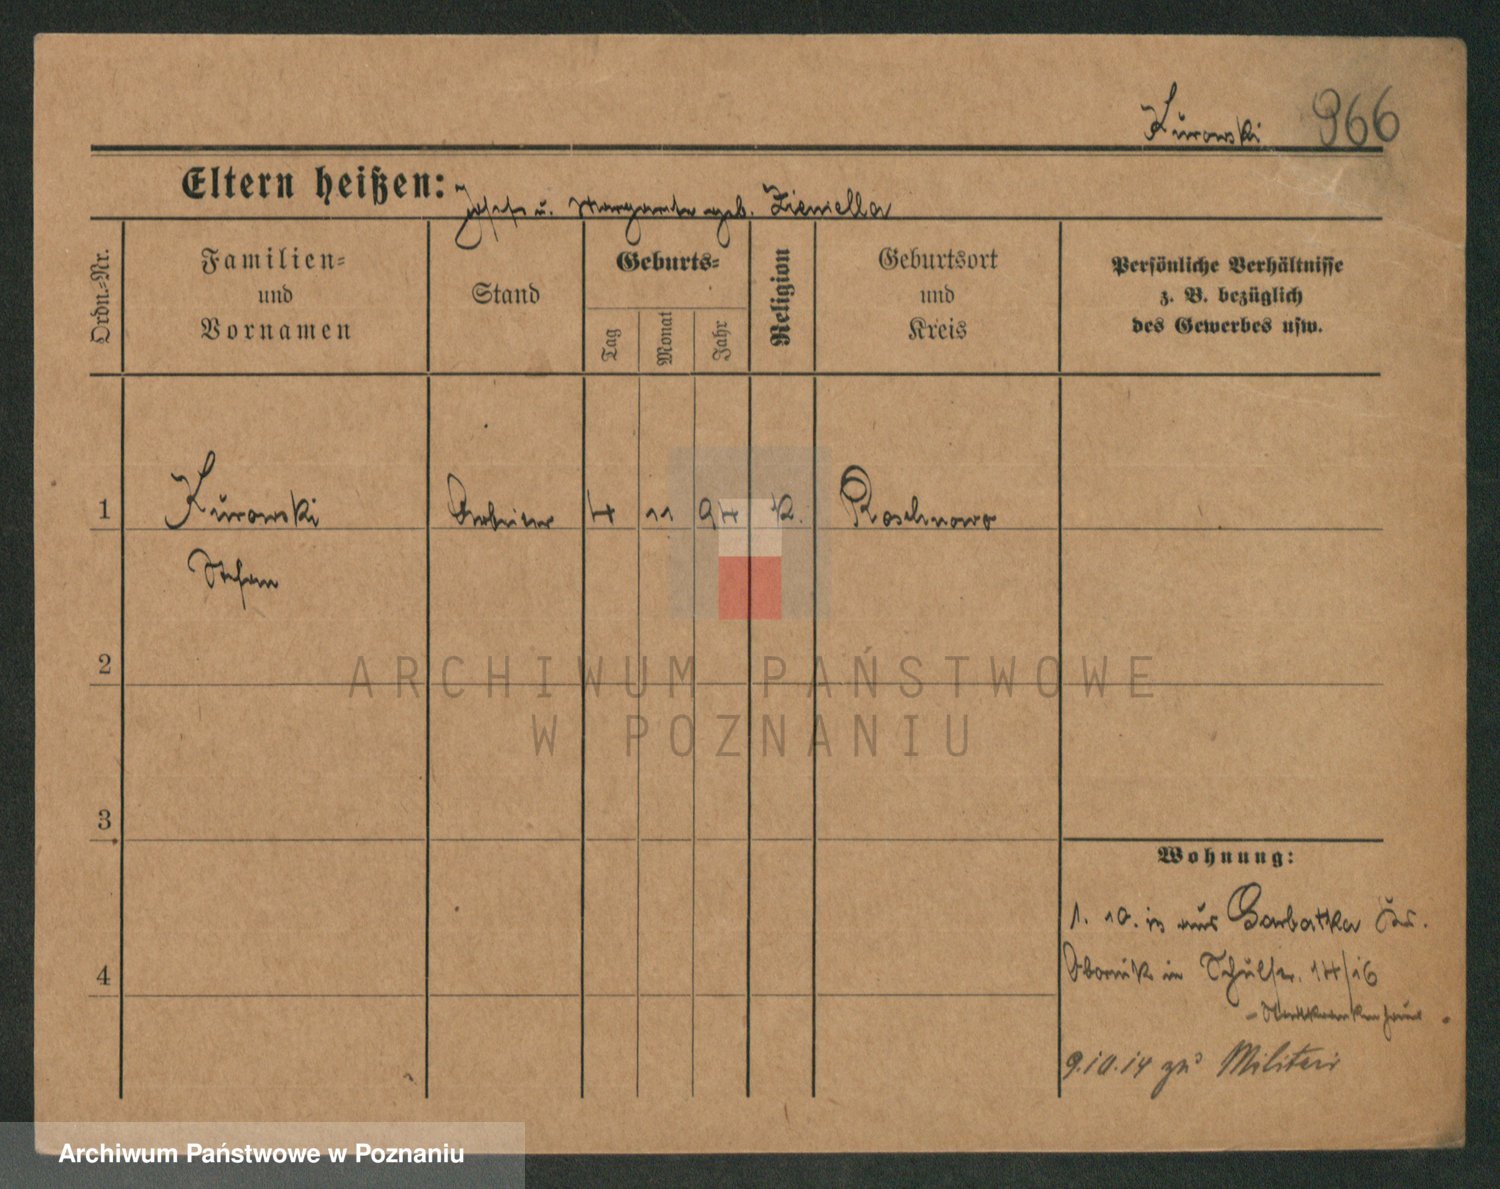 Kurowski 966
Eltern heißen: Josef u. Margarethe geb. Ziemella
Ordn.-Nr.
Familien-
und
Vornamen
Stand
Geburts-
Tag
Monat
Jahr
Religion
Geburtsort
und
Kreis
Persönliche Verhältnisse
z. B. bezüglich
des Gewerbes usw.
1 Kurowski Arbeiter 4 11 94 K. Roschnowo
Stefan
2
ARCHIWUM PAŃSTWOWE
W POZNANIU
3
Wohnung:
1. 10. 13 aus Garbatka
4
Obornik in Schulstr. 14/16
- Stadtkrankenhaus -
9.10.14 zu Militär
Archiwum Państwowe w Poznaniu